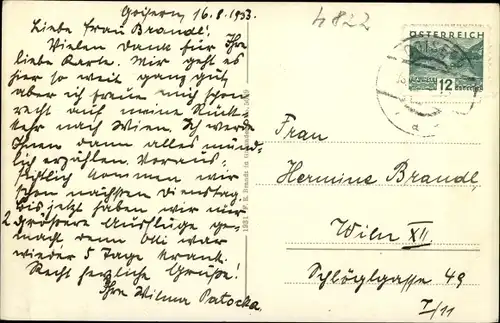 Goisern, 16.8.1933.
Liebe Frau Brandl!
Vielen Dank für Ihre
liebe Karte. Mir geht es
hier so weit ganz gut
aber ich freue mich schon
recht auf meine Rück-
kehr nach Wien. Ich werde
Ihnen dann alles münd-
lich erzählen. Voraus-
sichtlich kommen wir
schon nächsten Dienstag.
Bis jetzt haben wir nur
2 größere Ausflüge ge-
macht, denn Olli war
wieder 5 Tage krank.
Recht herzliche Grüße!
Ihre Wilma Patocka
4822
ÖSTERREICH
12
GROSCHEN
Frau
Hermine Brandl,
Wien XII
Schlöglgasse 49
I/11